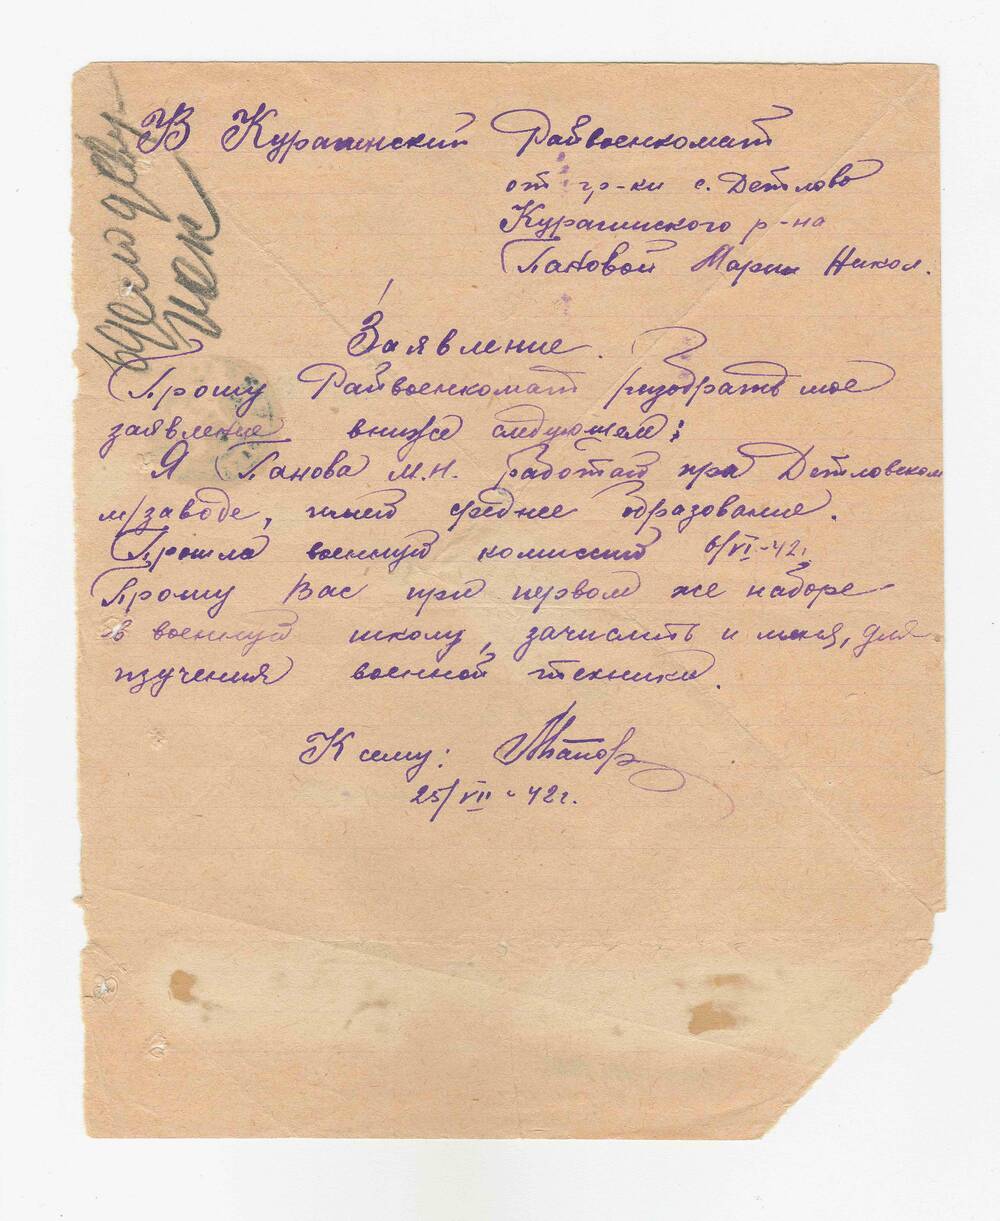 В Курагинский Райвоенкомат
от гр-ки с. Детлово
Курагинского р-на
Пановой Марии Никол.
Заявление.
Прошу Райвоенкомат разобрать мое
заявление в ниже следующем:
Я Панова М.Н. работаю при Детловском
м/заводе, имею среднее образование.
Прошла военную комиссию 6/VI-42г.
Прошу Вас при первом же наборе
в военную школу, зачислить и меня, для
изучения военной техники.
К сему: МПанов
25/VII-42г.
в дело